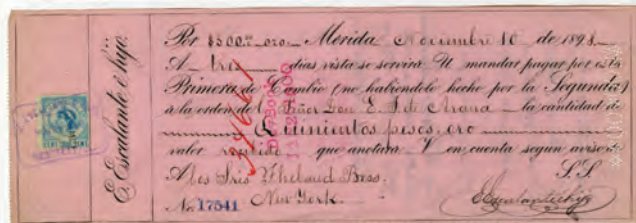 E. Escalante e hijo.
Por $500.00 oro. Merida, Noviembre 10 de 1898.
A tres dias vista se servirá U mandar pagar por esta
Primera de Cambio (no habiéndolo hecho por la Segunda)
á la orden del Señor Don E. J. de Arana la cantidad de
Quinientos pesos oro
valor recibido que anotará V en cuenta segun aviso de
A los Sres Thebaud Bros. S.S.
New York. E Escalante e hijo
No. 17541